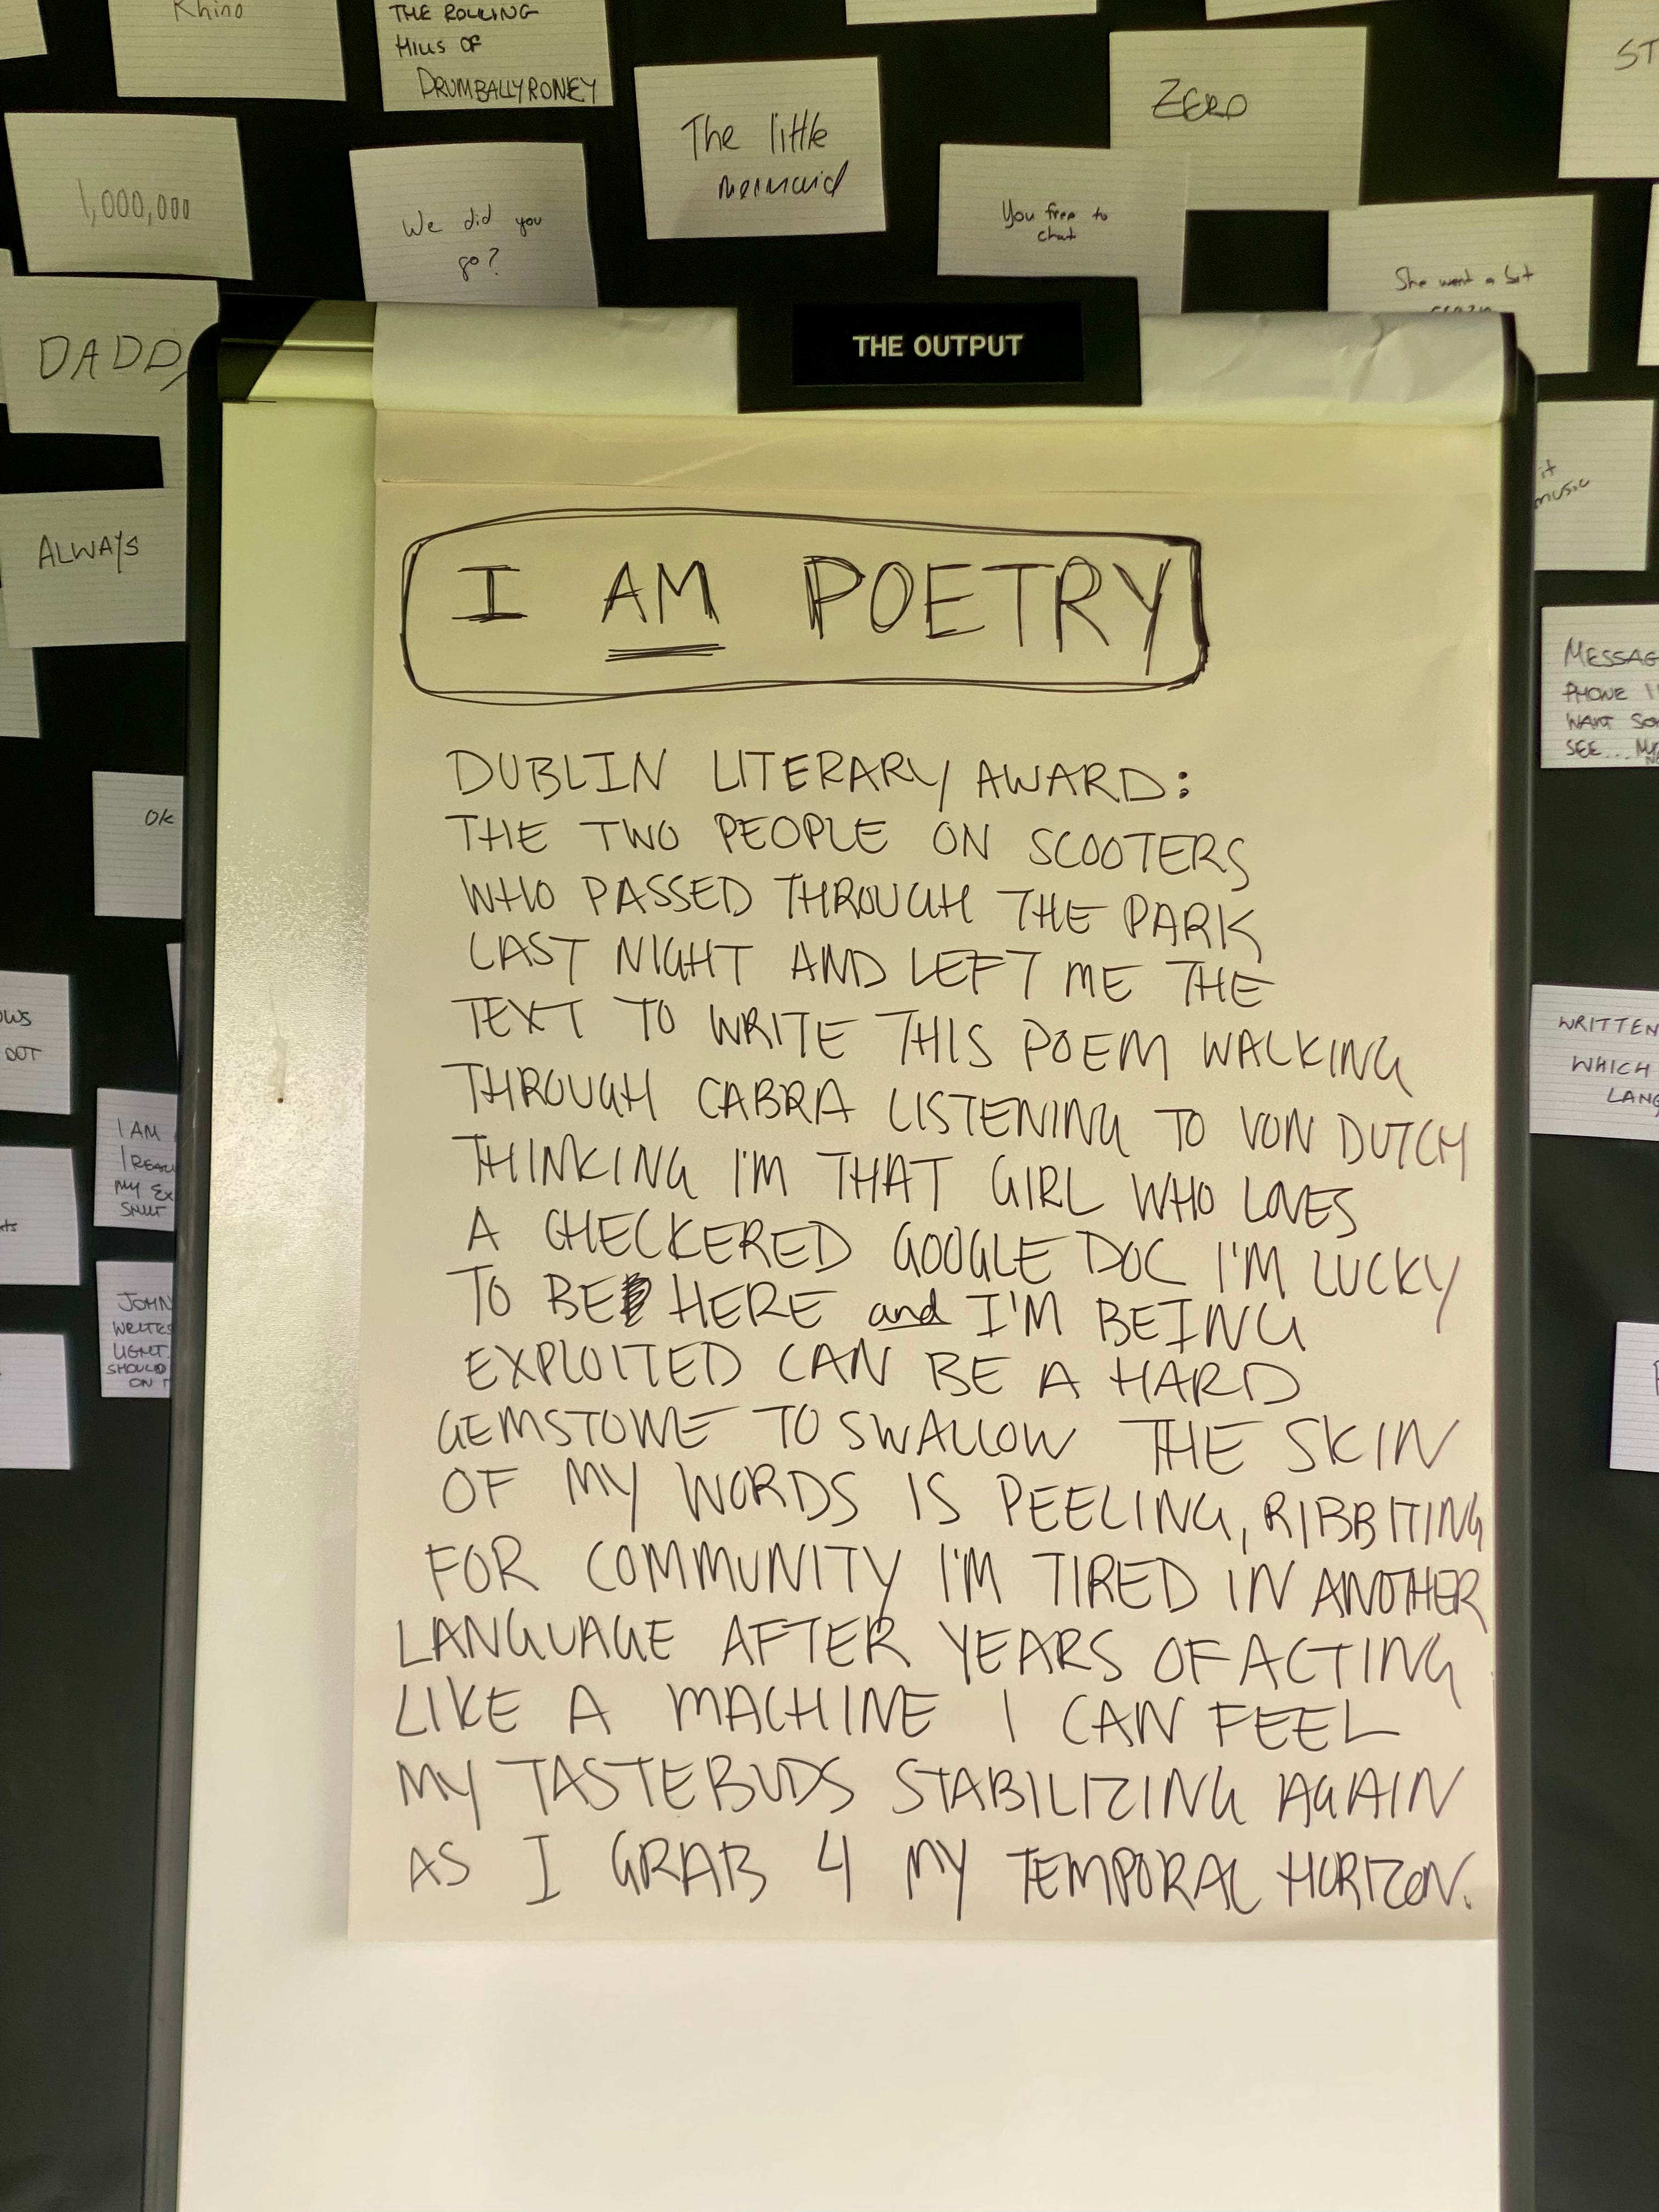 Khino
THE ROLLING
HILLS OF
DRUMBALLYRONEY
The little
mermaid
ZERO
ST
1,000,000
We did you
go?
You free to
chat
She went a bit
DADD
THE OUTPUT
ALWAYS
it
music
I AM POETRY
DUBLIN LITERARY AWARD:
THE TWO PEOPLE ON SCOOTERS
WHO PASSED THROUGH THE PARK
LAST NIGHT AND LEFT ME THE
TEXT TO WRITE THIS POEM WALKING
THROUGH CABRA LISTENING TO VON DUTCH
THINKING I'M THAT GIRL WHO LOVES
A CHECKERED GOOGLE DOC I'M LUCKY
TO BE HERE and I'M BEING
EXPLOITED CAN BE A HARD
GEMSTONE TO SWALLOW THE SKIN
OF MY WORDS IS PEELING, RIBBITING
FOR COMMUNITY I'M TIRED IN ANOTHER
LANGUAGE AFTER YEARS OF ACTING
LIKE A MACHINE I CAN FEEL
MY TASTEBUDS STABILIZING AGAIN
AS I GRAB 4 MY TEMPORAL HORIZON.
MESSAG
PHONE
WANT SO
SEE...
OK
OWS
OUT
WRITTEN
WHICH
LANG
I AM
I REAL
MY EX
SHUT
JOHN
WRITES
LIGHT.
SHOULD
ON